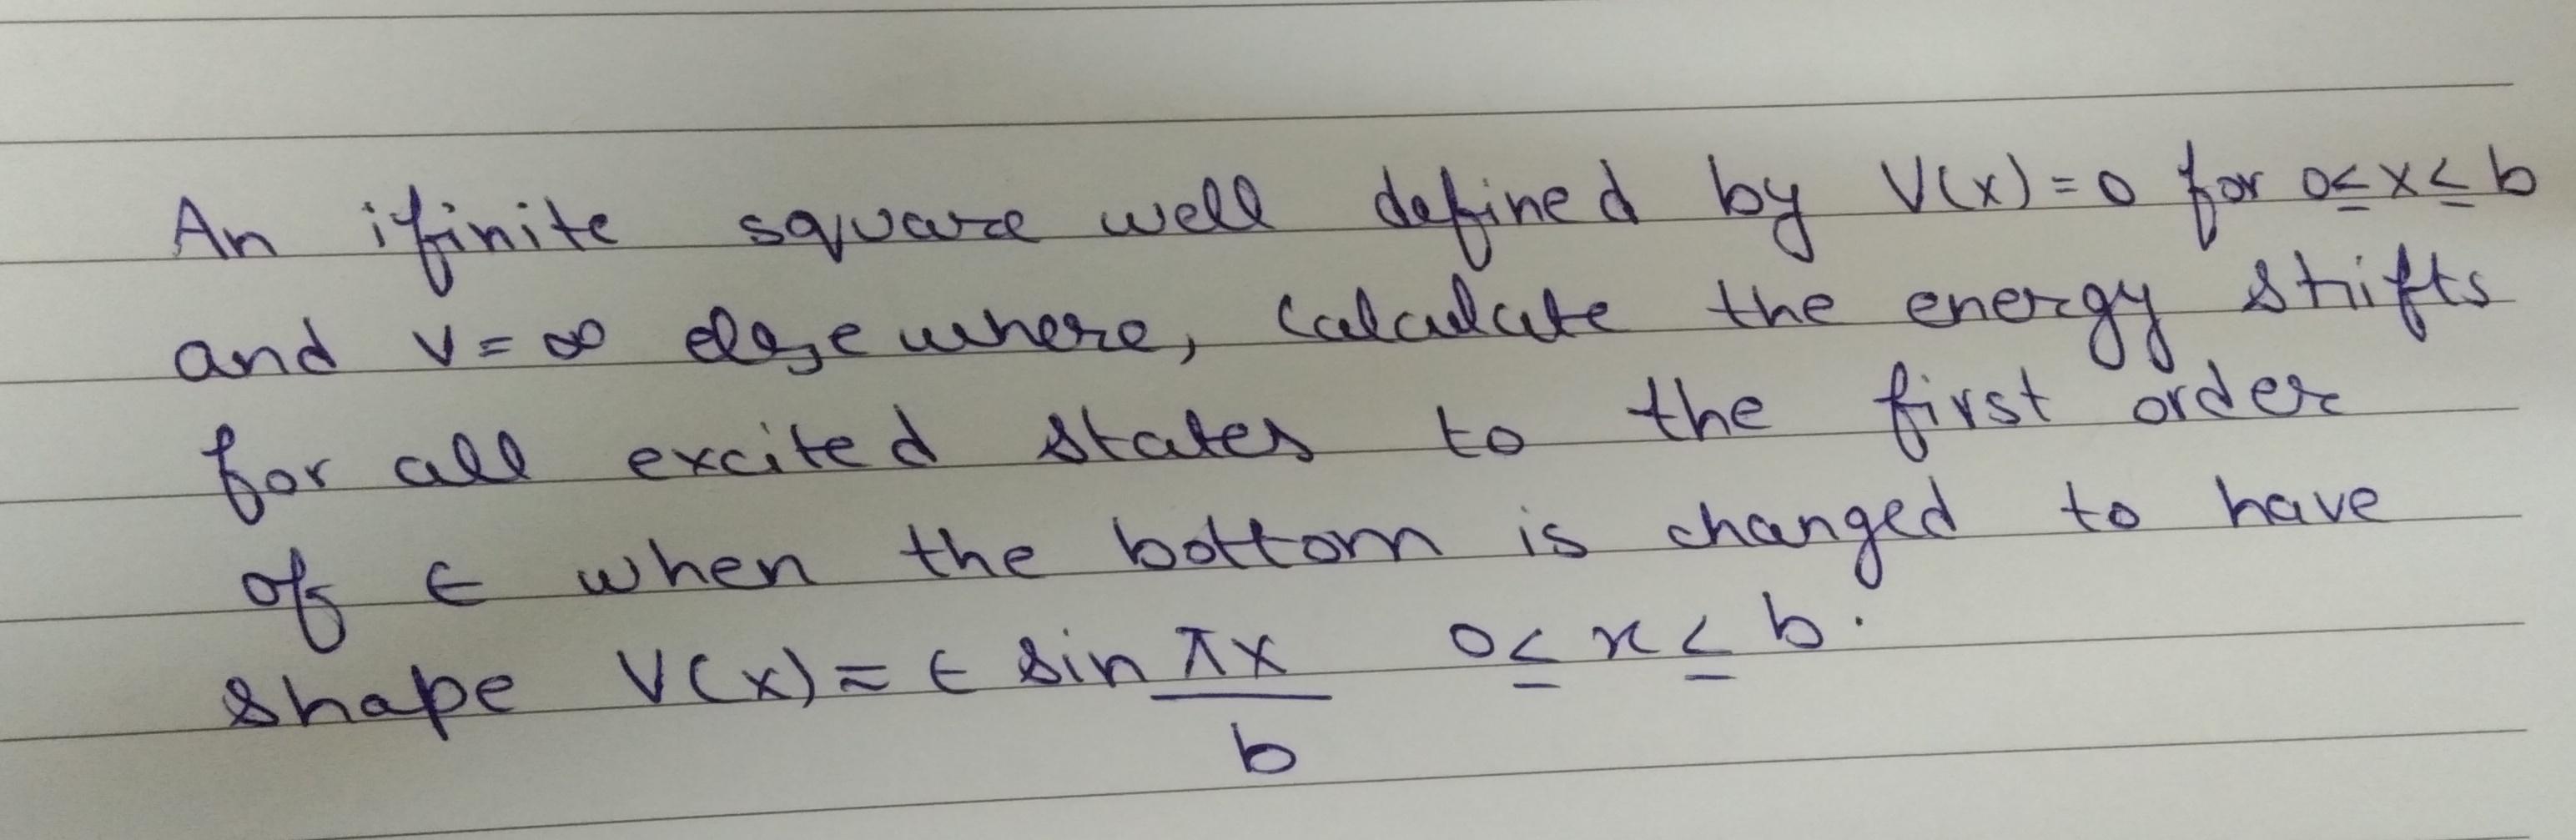 An ifinite square well defined by V(x)=0 for 0≤x≤b
and V=∞ elsewhere, calculate the energy shifts
for all excited states to the first order
of ϵ when the bottom is changed to have
shape V(x)=ϵ sin πx/b 0≤x≤b.